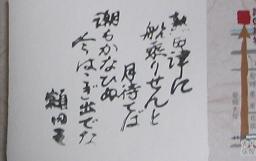 熟田津に
船乗りせんと
月待てば
潮もかなひぬ
今はこぎ出でな
額田王